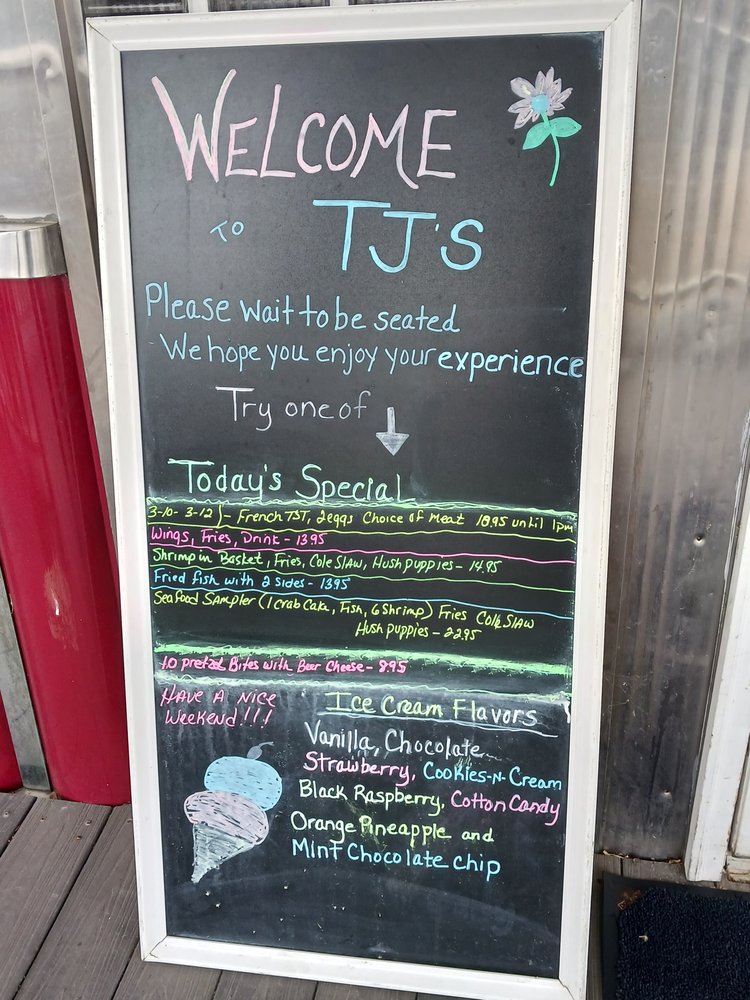 WELCOME
TO TJ'S
Please wait to be seated
We hope you enjoy your experience
Try one of
Today's Special
3-10- 3-12 - French TST, 2eggs Choice of Meat 10.95 until 1pm
Wings, Fries, Drink - 13.95
Shrimp in Basket, Fries, Cole Slaw, Hush puppies - 14.95
Fried fish with 2 sides - 13.95
Seafood Sampler (1 crab Cake, Fish, 6 Shrimp) Fries Cole Slaw
Hush puppies - 22.95
10 pretzel Bites with Beer Cheese - 8.95
HAVE A NICE
Weekend!!!
Ice Cream Flavors
Vanilla, Chocolate
Strawberry, Cookies-N-Cream
Black Raspberry, Cotton Candy
Orange Pineapple and
Mint Chocolate chip